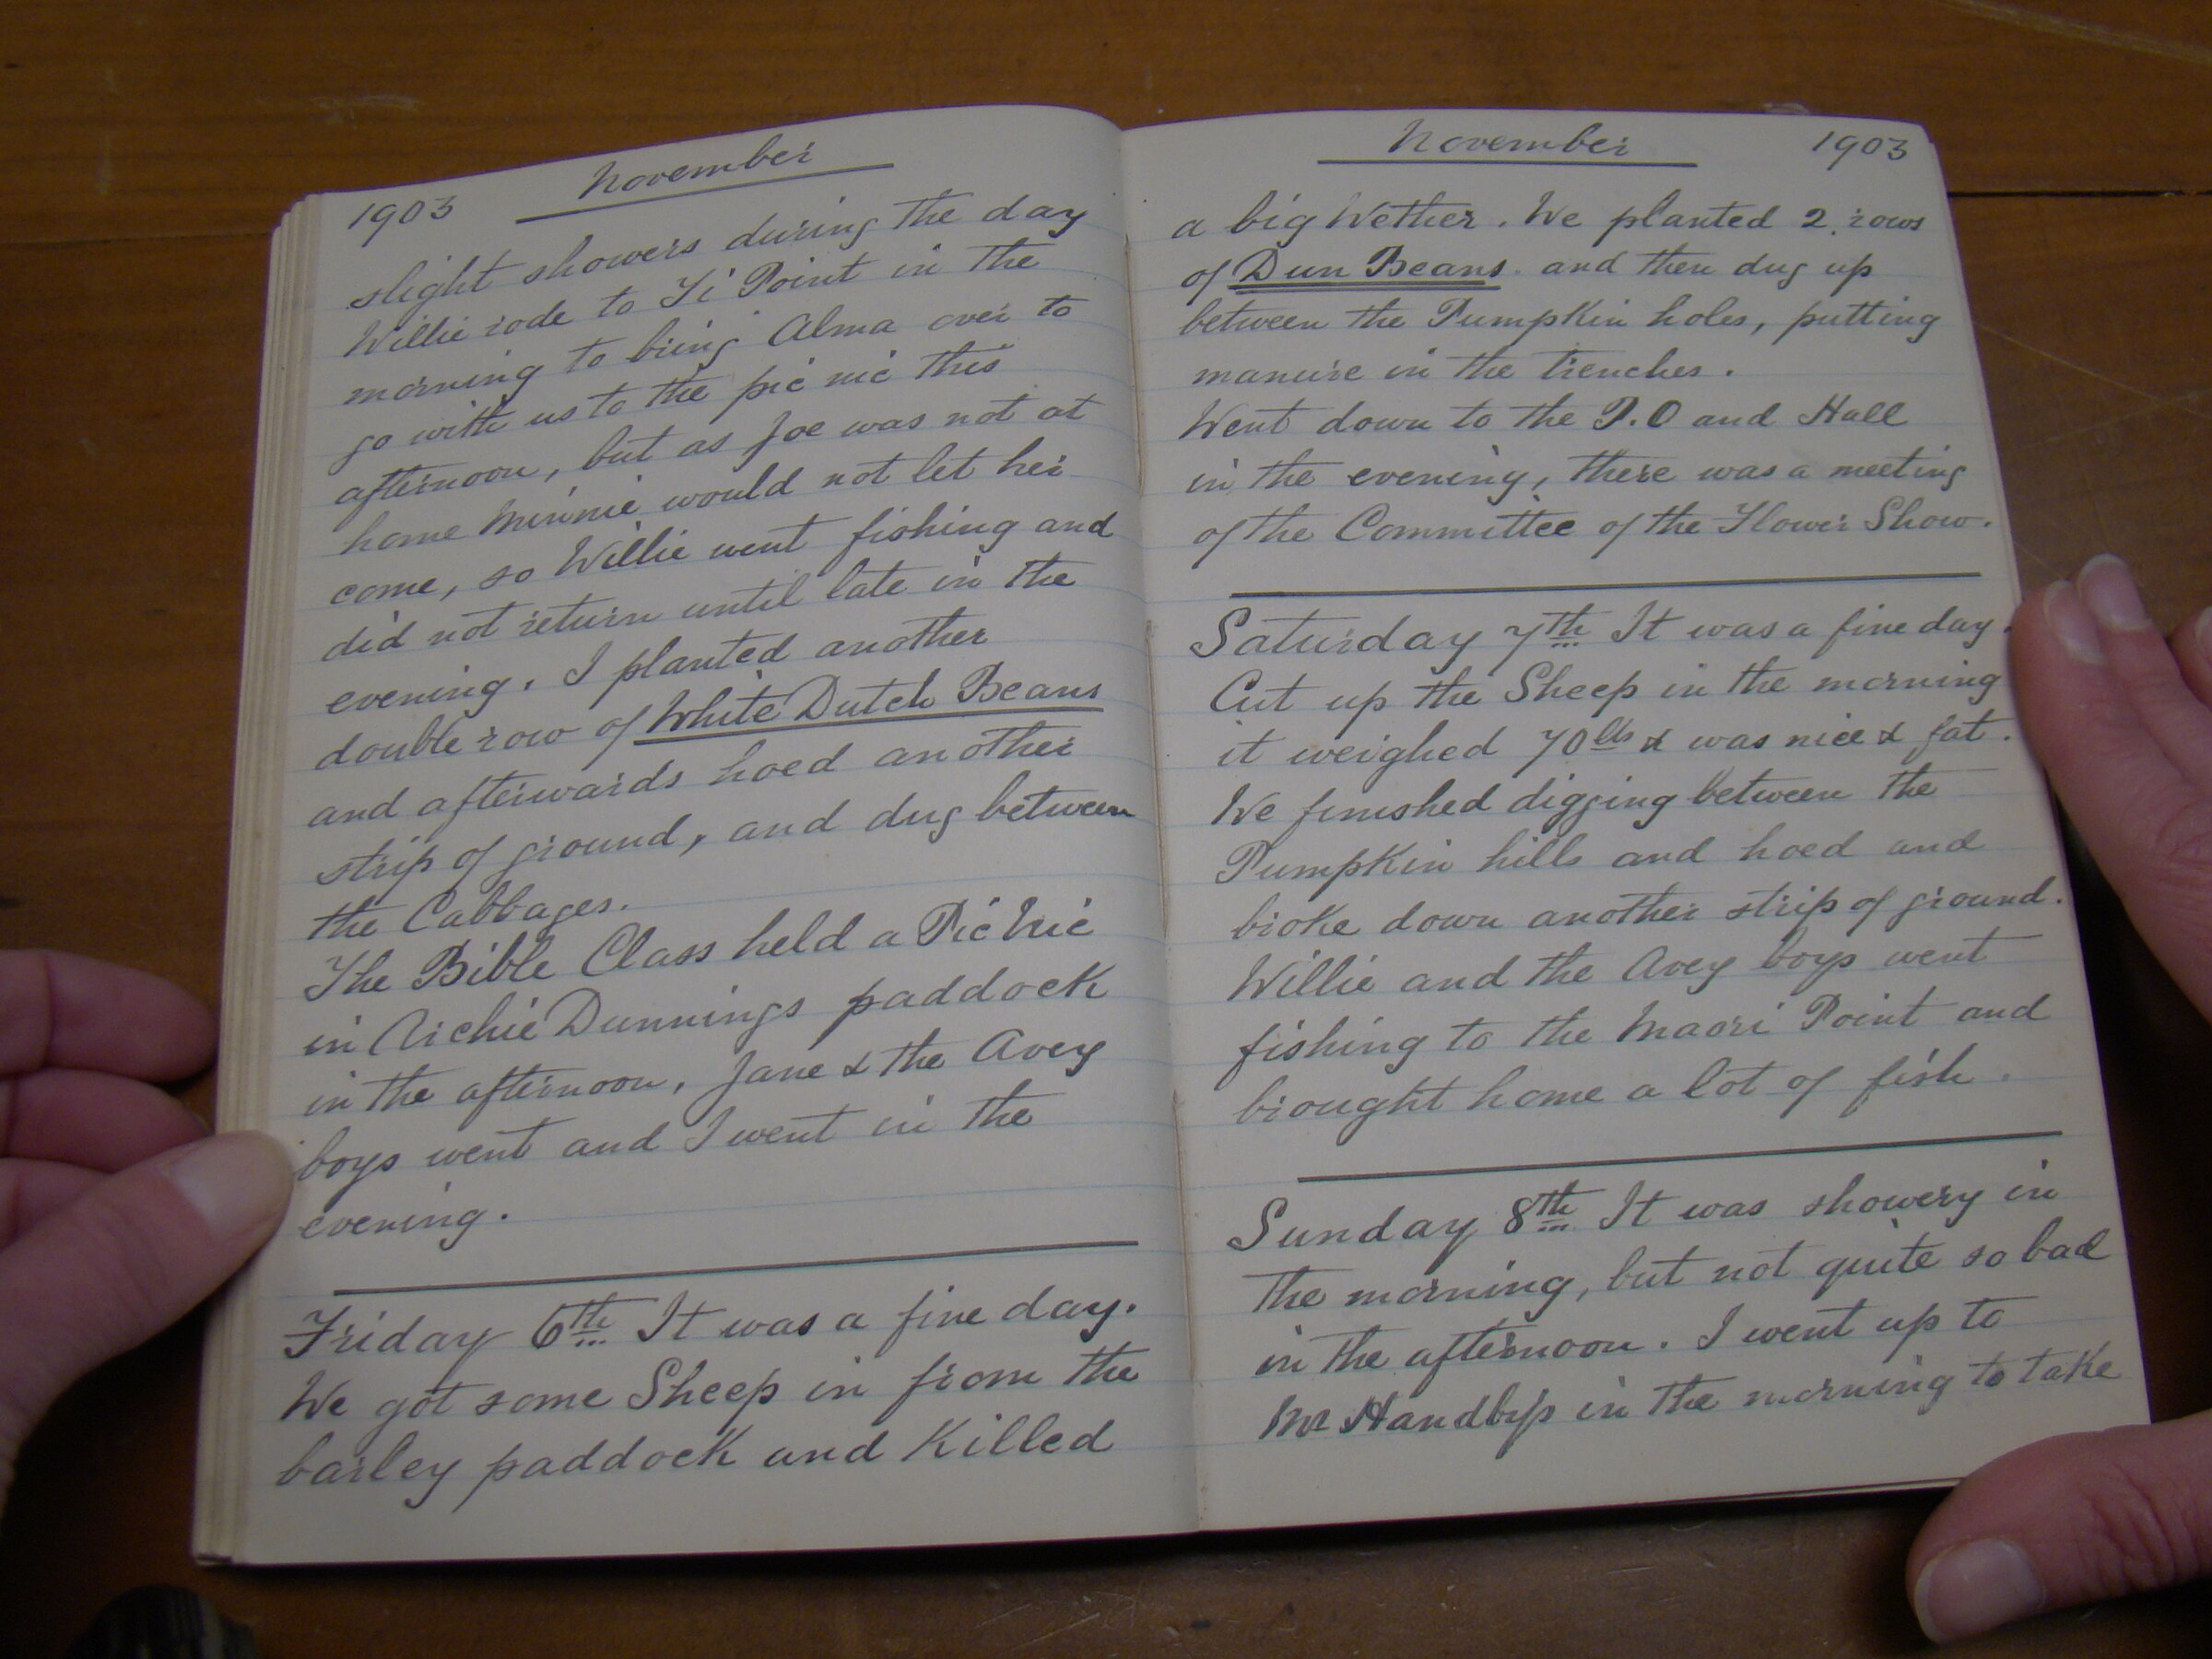 1903 November
slight showers during the day
Willie rode to Ti Point in the
morning to bring Alma over to
go with us to the pic nic this
afternoon, but as Joe was not at
home Minnie would not let her
come, so Willie went fishing and
did not return until late in the
evening. I planted another
double row of White Dutch Beans
and afterwards hoed another
strip of ground, and dug between
the Cabbages.
The Bible Class held a Pic Nic
in Archie Dunnings paddock
in the afternoon, Jane & the Avey
boys went and I went in the
evening.
Friday 6th It was a fine day.
We got some Sheep in from the
barley paddock and Killed
November 1903
a big Wether. We planted 2 rows
of Dun Beans. and then dug up
between the Pumpkin holes, putting
manure in the trenches.
Went down to the P.O and Hall
in the evening, there was a meeting
of the Committee of the Flower Show.
Saturday 7th It was a fine day.
Cut up the Sheep in the morning
it weighed 70lbs & was nice & fat.
We finished digging between the
Pumpkin hills and hoed and
broke down another strip of ground.
Willie and the Avey boys went
fishing to the Maori Point and
brought home a lot of fish.
Sunday 8th It was showery in
the morning, but not quite so bad
in the afternoon. I went up to
Mr in the morning to take